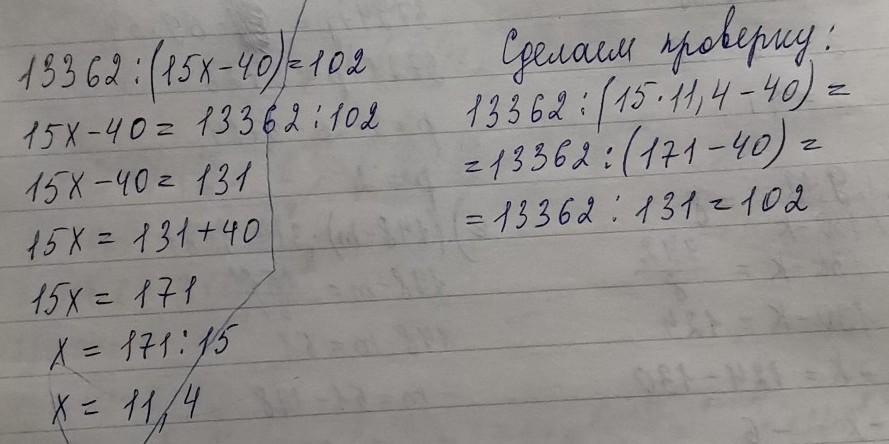 13362:(15x-40)=102
15x-40= 13362:102
15x-40= 131
15x= 131+40
15x= 171
x= 171:15
x= 11,4
Сделаем проверку:
13362:(15·11,4-40)=
=13362:(171-40)=
=13362:131=102